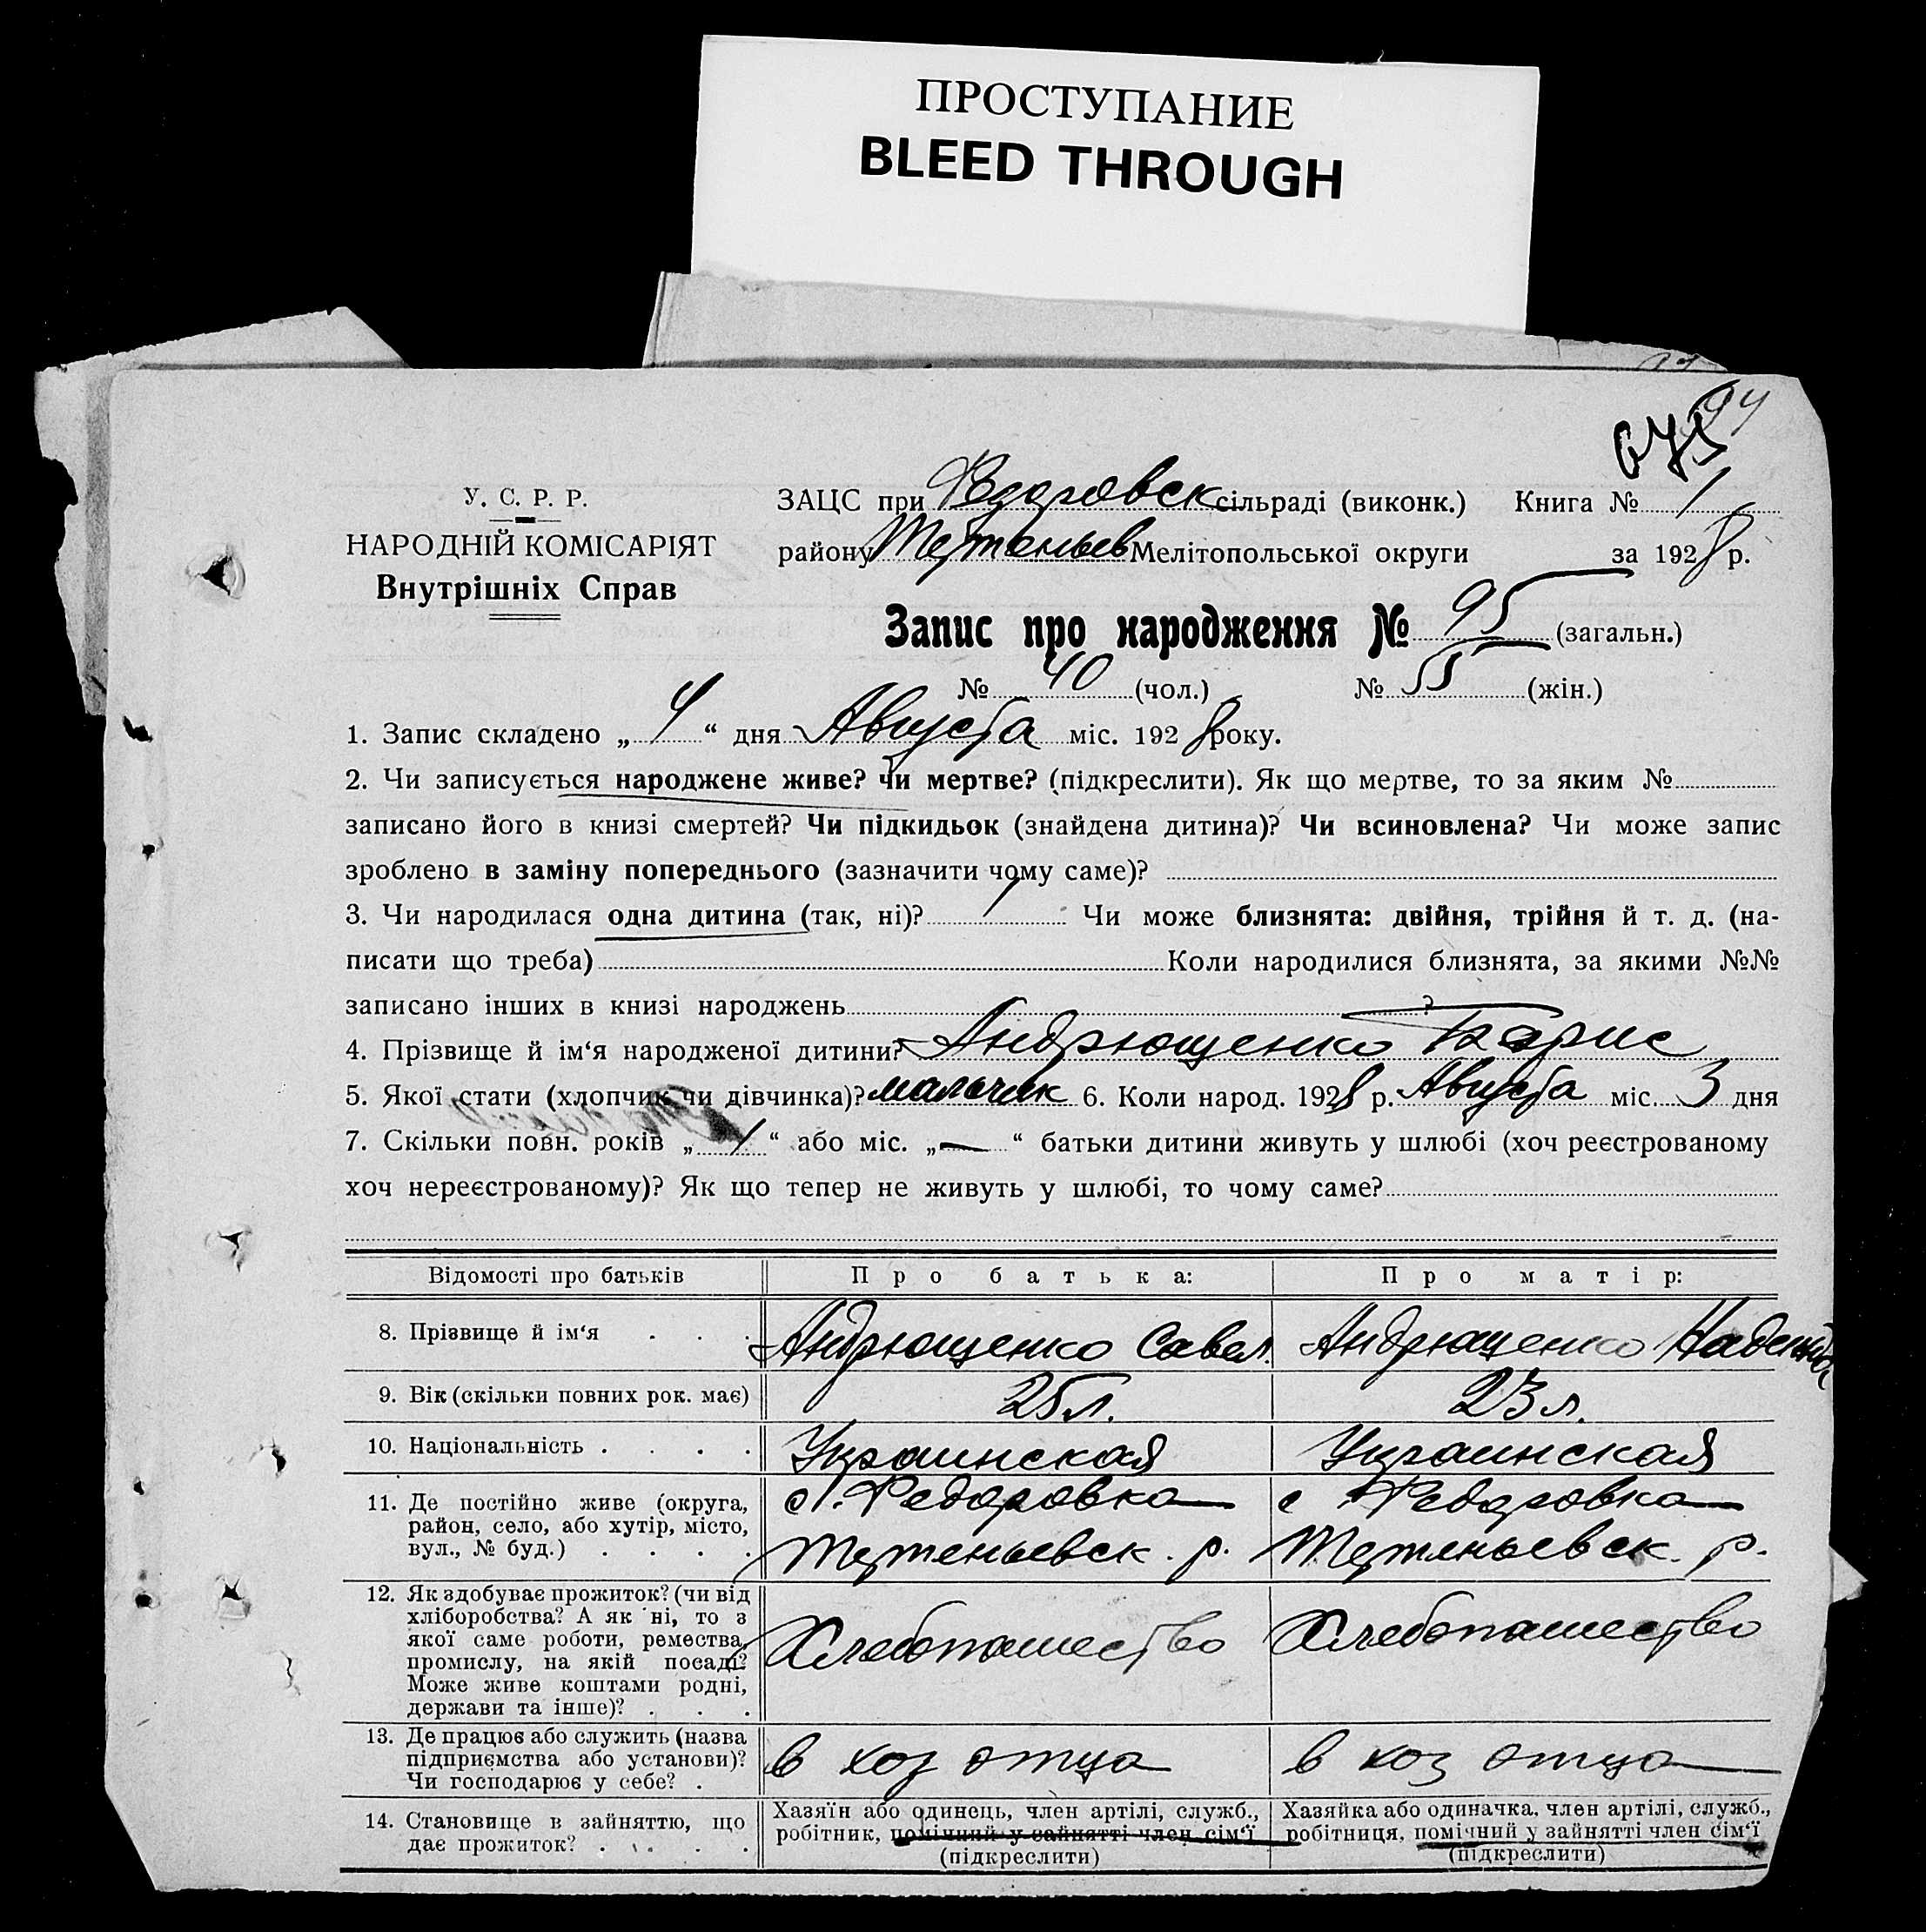 ПРОСТУПАНИЕ
BLEED THROUGH
94
675
У. С. Р. Р.
НАРОДНІЙ КОМІСАРІЯТ
Внутрішніх Справ
ЗАЦС при Федоровск сільраді (виконк.) Книга № 1
району Тертеньев Мелітопольської округи за 1928 р.
Запис про народження № 95 (загальн.)
№ 40 (чол.) № 55 (жін.)
1. Запис складено „ 4 “ дня Августа міс. 1928 року.
2. Чи записується народжене живе? чи мертве? (підкреслити). Як що мертве, то за яким №
записано його в книзі смертей? Чи підкидьок (знайдена дитина)? Чи всиновлена? Чи може запис
зроблено в заміну попереднього (зазначити чому саме)?
3. Чи народилася одна дитина (так, ні)? 1 Чи може близнята: двійня, трійня й т. д. (на-
писати що треба) Коли народилися близнята, за якими №№
записано інших в книзі народжень ?
4. Прізвище й ім‘я народженої дитини? Андрющенко Борис
5. Якої стати (хлопчик чи дівчинка)? мальчик 6. Коли народ. 1928 р. Августа міс. 3 дня
7. Скільки повн. років „ 1 “ або міс. „ — “ батьки дитини живуть у шлюбі (хоч реєстрованому
хоч нереєстрованому)? Як що тепер не живуть у шлюбі, то чому саме?
Відомості про батьків
Про батька:
Про матір:
8. Прізвище й ім‘я . . .
Андрющенко Савел.
Андрющенко Надежда
9. Вік (скільки повних рок. має)
25 л.
23 л.
10. Національність . . . .
Украинская
Украинская
11. Де постійно живе (округа,
район, село, або хутір, місто,
вул., № буд.) . . . .
с. Федоровка
Тертеньевск. р.
с. Федоровка
Тертеньевск. р.
12. Як здобуває прожиток? (чи від
хліборобства? А як ні, то з
якої саме роботи, ремества,
промислу, на якій посаді?
Може живе коштами родні,
держави та інше)? . . .
Хлебопашество
Хлебопашество
13. Де працює або служить (назва
підприємства або установи)?
Чи господарює у себе? .
в хоз отца
в хоз отца
14. Становище в зайняттю, що
дає прожиток? . . . .
Хазяїн або одинець, член артілі, служб.,
робітник, помічний у зайнятті член сім‘ї
(підкреслити)
Хазяйка або одиначка, член артілі, служб.,
робітниця, помічний у зайнятті член сім‘ї
(підкреслити)